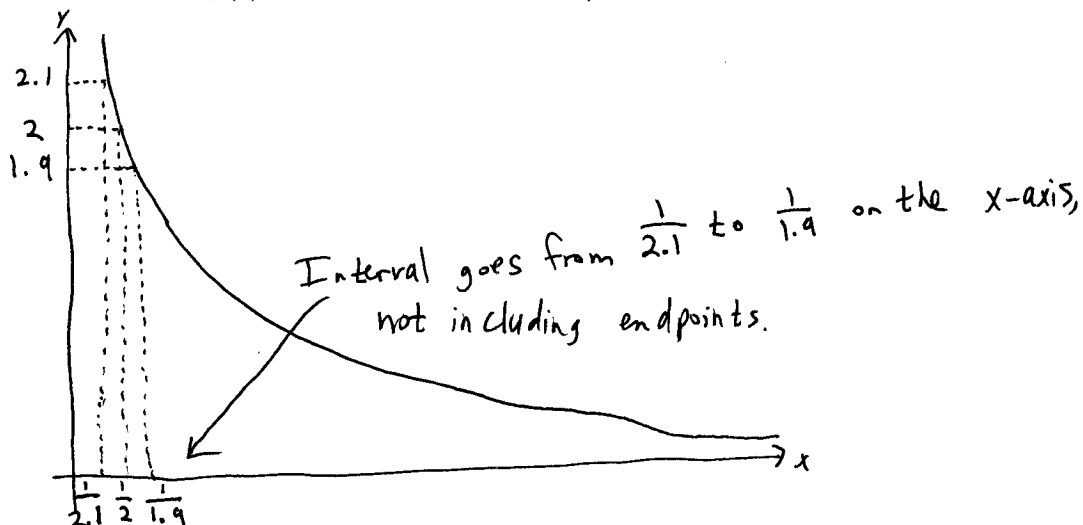 y
2.1
2
1.9
Interval goes from 1/2.1 to 1/1.9 on the x-axis,
not including endpoints.
x
1/2.1 1/2 1/1.9